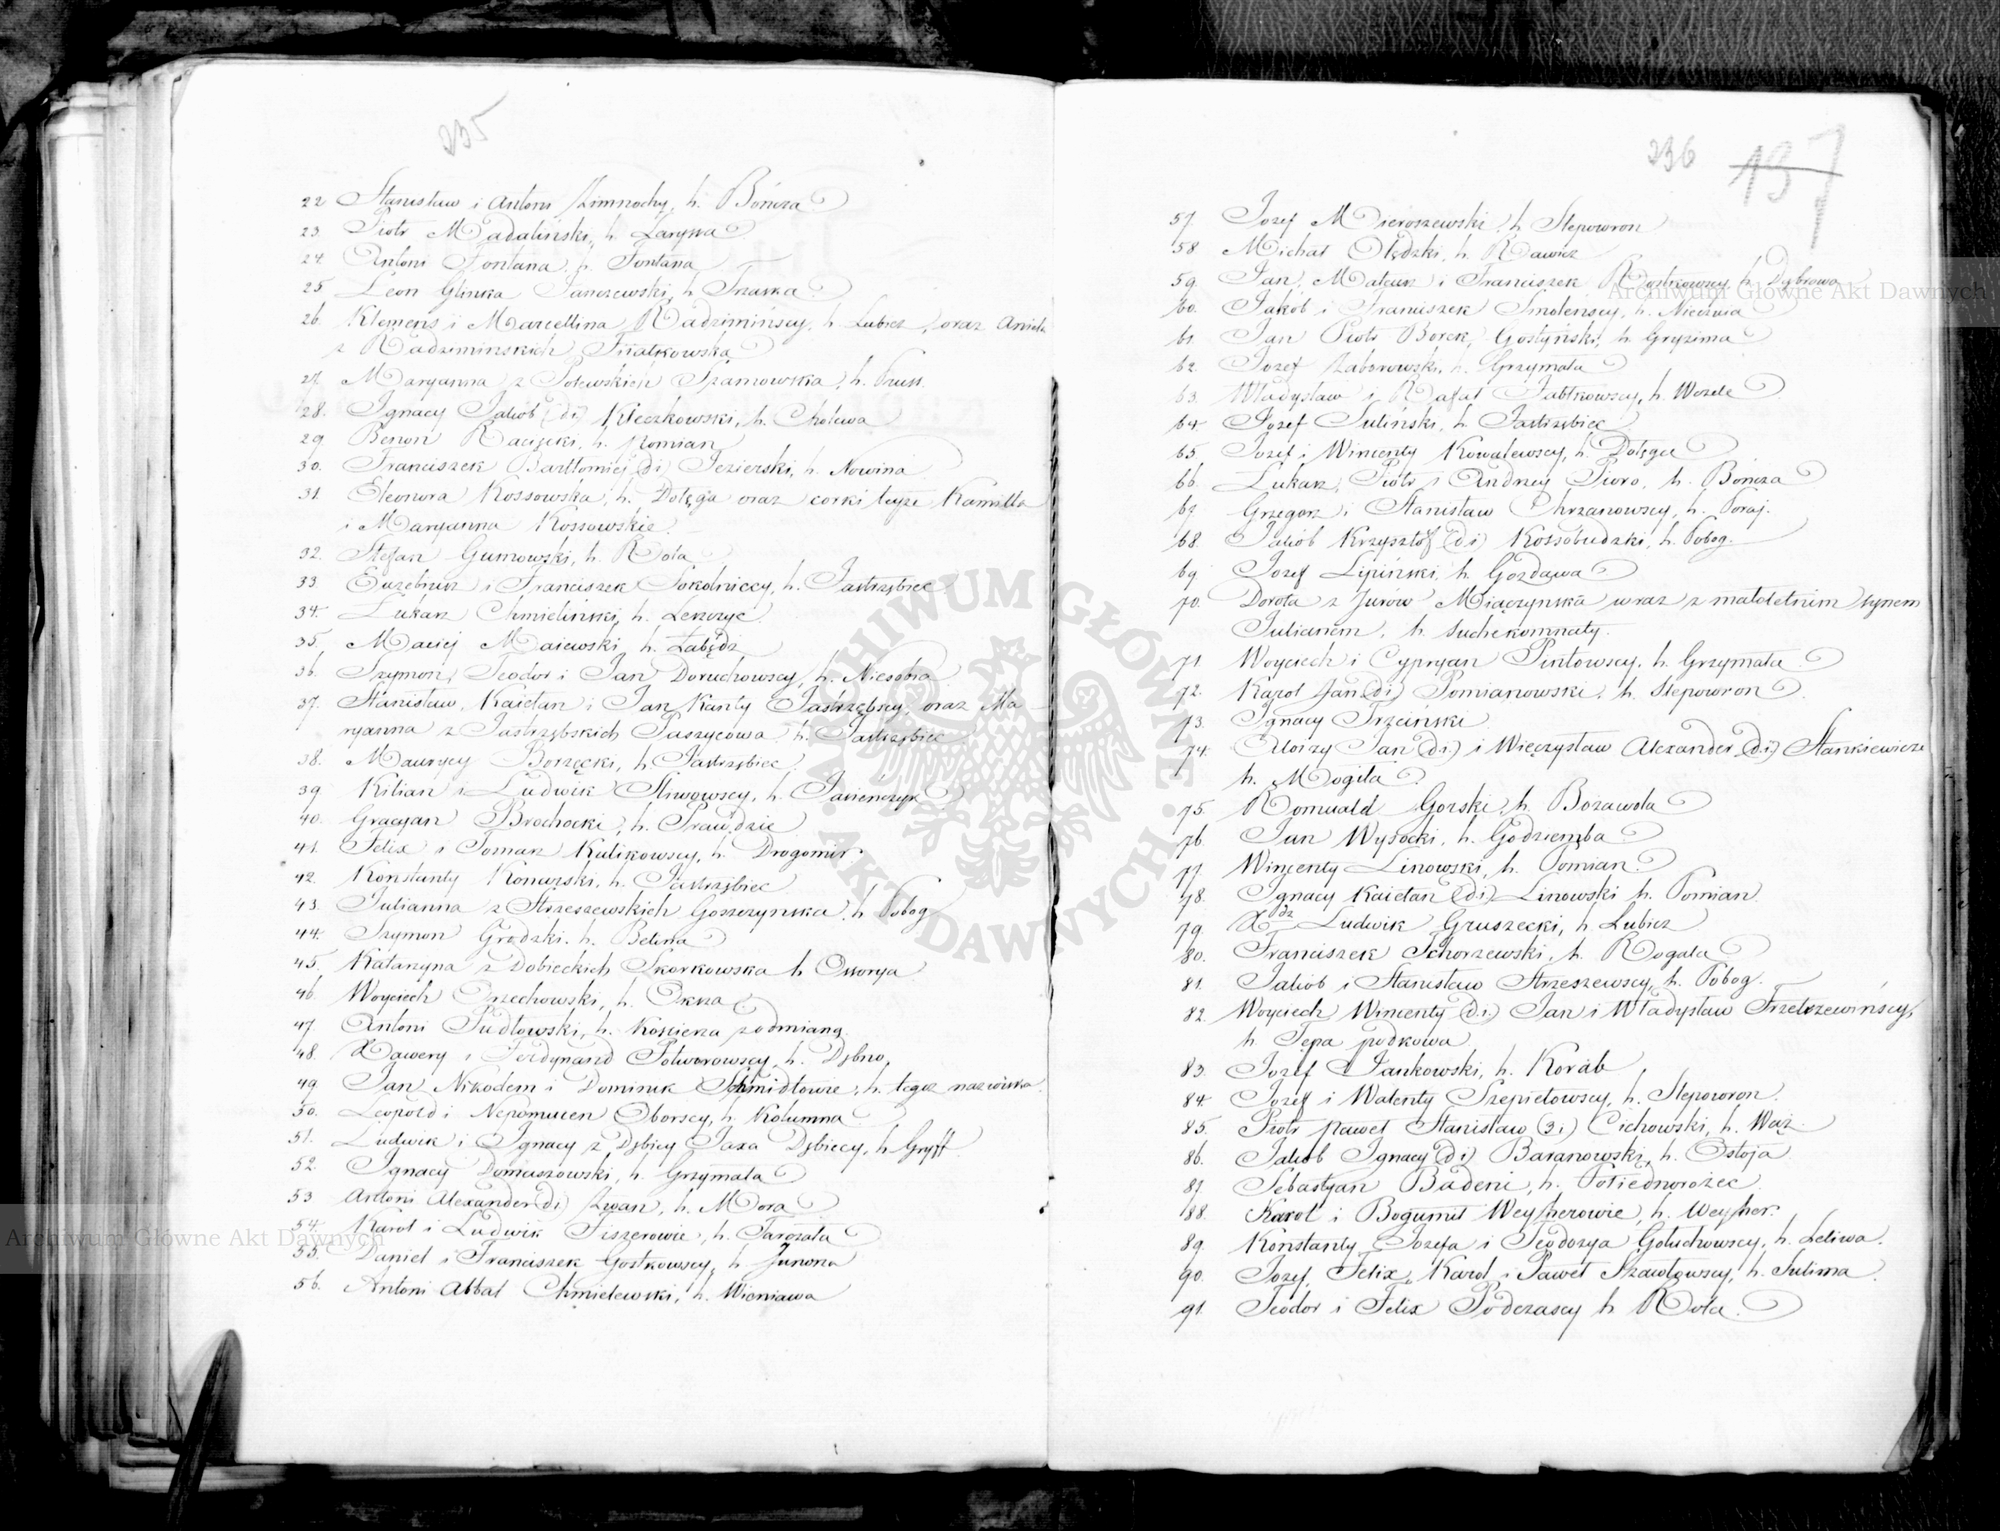 235
22 Stanisław i Antoni Zimnochy, h. Bończa
23. Piotr Madaliński, h. Laryssa
24. Antoni Fontana, h. Fontana
25. Leon Glinka Janczewski, h. Trzaska
26. Klemens i Marcellina Radzimińscy, h. Lubicz, oraz Aniela
z Radzimińskich Fiiałkowska
27. Maryanna z Szamowska, h. Pruss
28. Ignacy Jakób (2i) Kleczkowski, h. Cholewa
29 Benon Racięcki, h. Pomian
30. Franciszek Bartłomiej (2i) Jezierski, h. Nowina
31. Eleonora Kossowska, h. Dołęga oraz corki teyże Kamilla
i Maryanna Kossowskie
32. Stefan Gumowski, h. Rola
33 Euzebiusz i Franciszek Sokolniccy, h. Jastrzębiec
34. Lukasz Chmieliński, h. Leszczyc
35. Maciej Maiewski, h. Łabędź
36. Szymon, Teodor i Jan Doruchowscy, h. Niesobia
37. Stanisław, Kaietan i Jan Kanty Jastrzębscy oraz Ma-
ryanna z Jastrzębskich Paszycowa h. Jastrzębiec
38. Maurycy Borzęcki, h. Jastrzębiec
39 Kilian i Ludwik Śliwowscy, h. Jasieńczyk
40. Gracyan Brochocki, h. Prawdzic
41. Felix i Tomasz Kulikowscy, h. Drogomir
42. Konstanty Konarski, h. Jastrzębiec
43. Julianna z Strzeszewskich Goszczyńska, h. Pobog
44. Szymon Grodzki, h. Belina
45. Katarzyna z Dobieckich Skorkowska h Ossorya
46. Woyciech Orzechowski, h. Oksza
47. Antoni Pudłowski, h. Kościesza z odmianą
48. Xawery i Ferdynand Potworowscy, h. Dębno
49 Jan Nikodem i Dominik Schmidtowie, h. tegoż nazwiska
50. Leopold i Nepomucen Oborscy, h. Kolumna
51. Ludwik i Ignacy z Dębicy Jaxa Dębiccy, h Gryff
52. Ignacy Domaszowski, h. Grzymała
53 Antoni Alexander (2i) Zwan, h. Mora
54. Karol i Ludwik Fiszerowie, h. Tarczała
55. Daniel i Franciszek Gostkowscy, h Junosza
56. Antoni Abbal Chmielewski, h. Wieniawa
236 137
57. Jozef Mieroszewski, h Slepowron
58 Michał Olędzki, h. Rawicz
59. Jan, Mateusz i Franciszek Rostkowscy, h. Dąbrowa
60. Jakób i Franciszek Smoleńscy, h. Nieczuia
61 Jan Piotr Borek Gostyński, h. Gryzima
62. Jozef Zaborowski, h. Grzymała
63. Władysław i Rafał Jabłkowscy, h. Wczele
64 Jozef Suliński, h. Jastrzębiec
65. Jozef i Wincenty Kowalewscy, h. Dołęga
66. Łukasz, Piotr i Andrzey Pioro, h. Bończa
67 Grzegorz i Stanisław Chrzanowscy, h. Poraj.
68. Jakób Krzysztof (2i) Kossobudzki, h. Pobog
69 Jozef Lipiński, h. Gozdawa
70. Dorota z Jurów Miączyńska wraz z małoletnim synem
Julianem, h. Suchekomnaty.
71. Woyciech i Cypryan Pintowscy, h. Grzymała
72. Karol Jan (2i) Pomianowski, h. Slepowron
73. Ignacy Trzciński
74. Aloizy Jan (2i) i Mieczysław Alexander (2i) Stankiewicze
h. Mogiła
75. Romuald Gorski, h. Bożawola
76. Jan Wysocki, h. Godziemba
77. Wincenty Linowski, h. Pomian
78. Ignacy Kaietan (2i) Linowski h. Pomian
79. Xdz Ludwik Gruszecki, h Lubicz
80. Franciszek Schorzewski, h. Rogala
81. Jakób i Stanisław Strzeszewscy, h. Pobog
82. Woyciech Wincenty (2i) Jan i Władysław Trzebszewińscy,
h. Tępa podkowa
83. Jozef Jankowski, h. Korab
84. Jozef i Walenty Szepietowscy, h. Slepowron
85. Piotr Paweł Stanisław (3i) Cichowski, h. Wąż
86. Jakób Ignacy (2i) Baranowski, h. Ostoja
87. Sebastyan Badeni, h. Połiednorożec
88. Karol i Bogumił Weyherowie, h. Weyher
89. Konstanty Jozefa i Teodozya Gołuchowscy, h. Leliwa
90. Jozef, Felix, Karol i Paweł Szawłowscy, h. Sulima
91. Teodor i Felix Podczascy h. Rola
ARCHIWUM GŁÓWNE AKT DAWNYCH
Archiwum Główne Akt Dawnych
Archiwum Główne Akt Dawnych